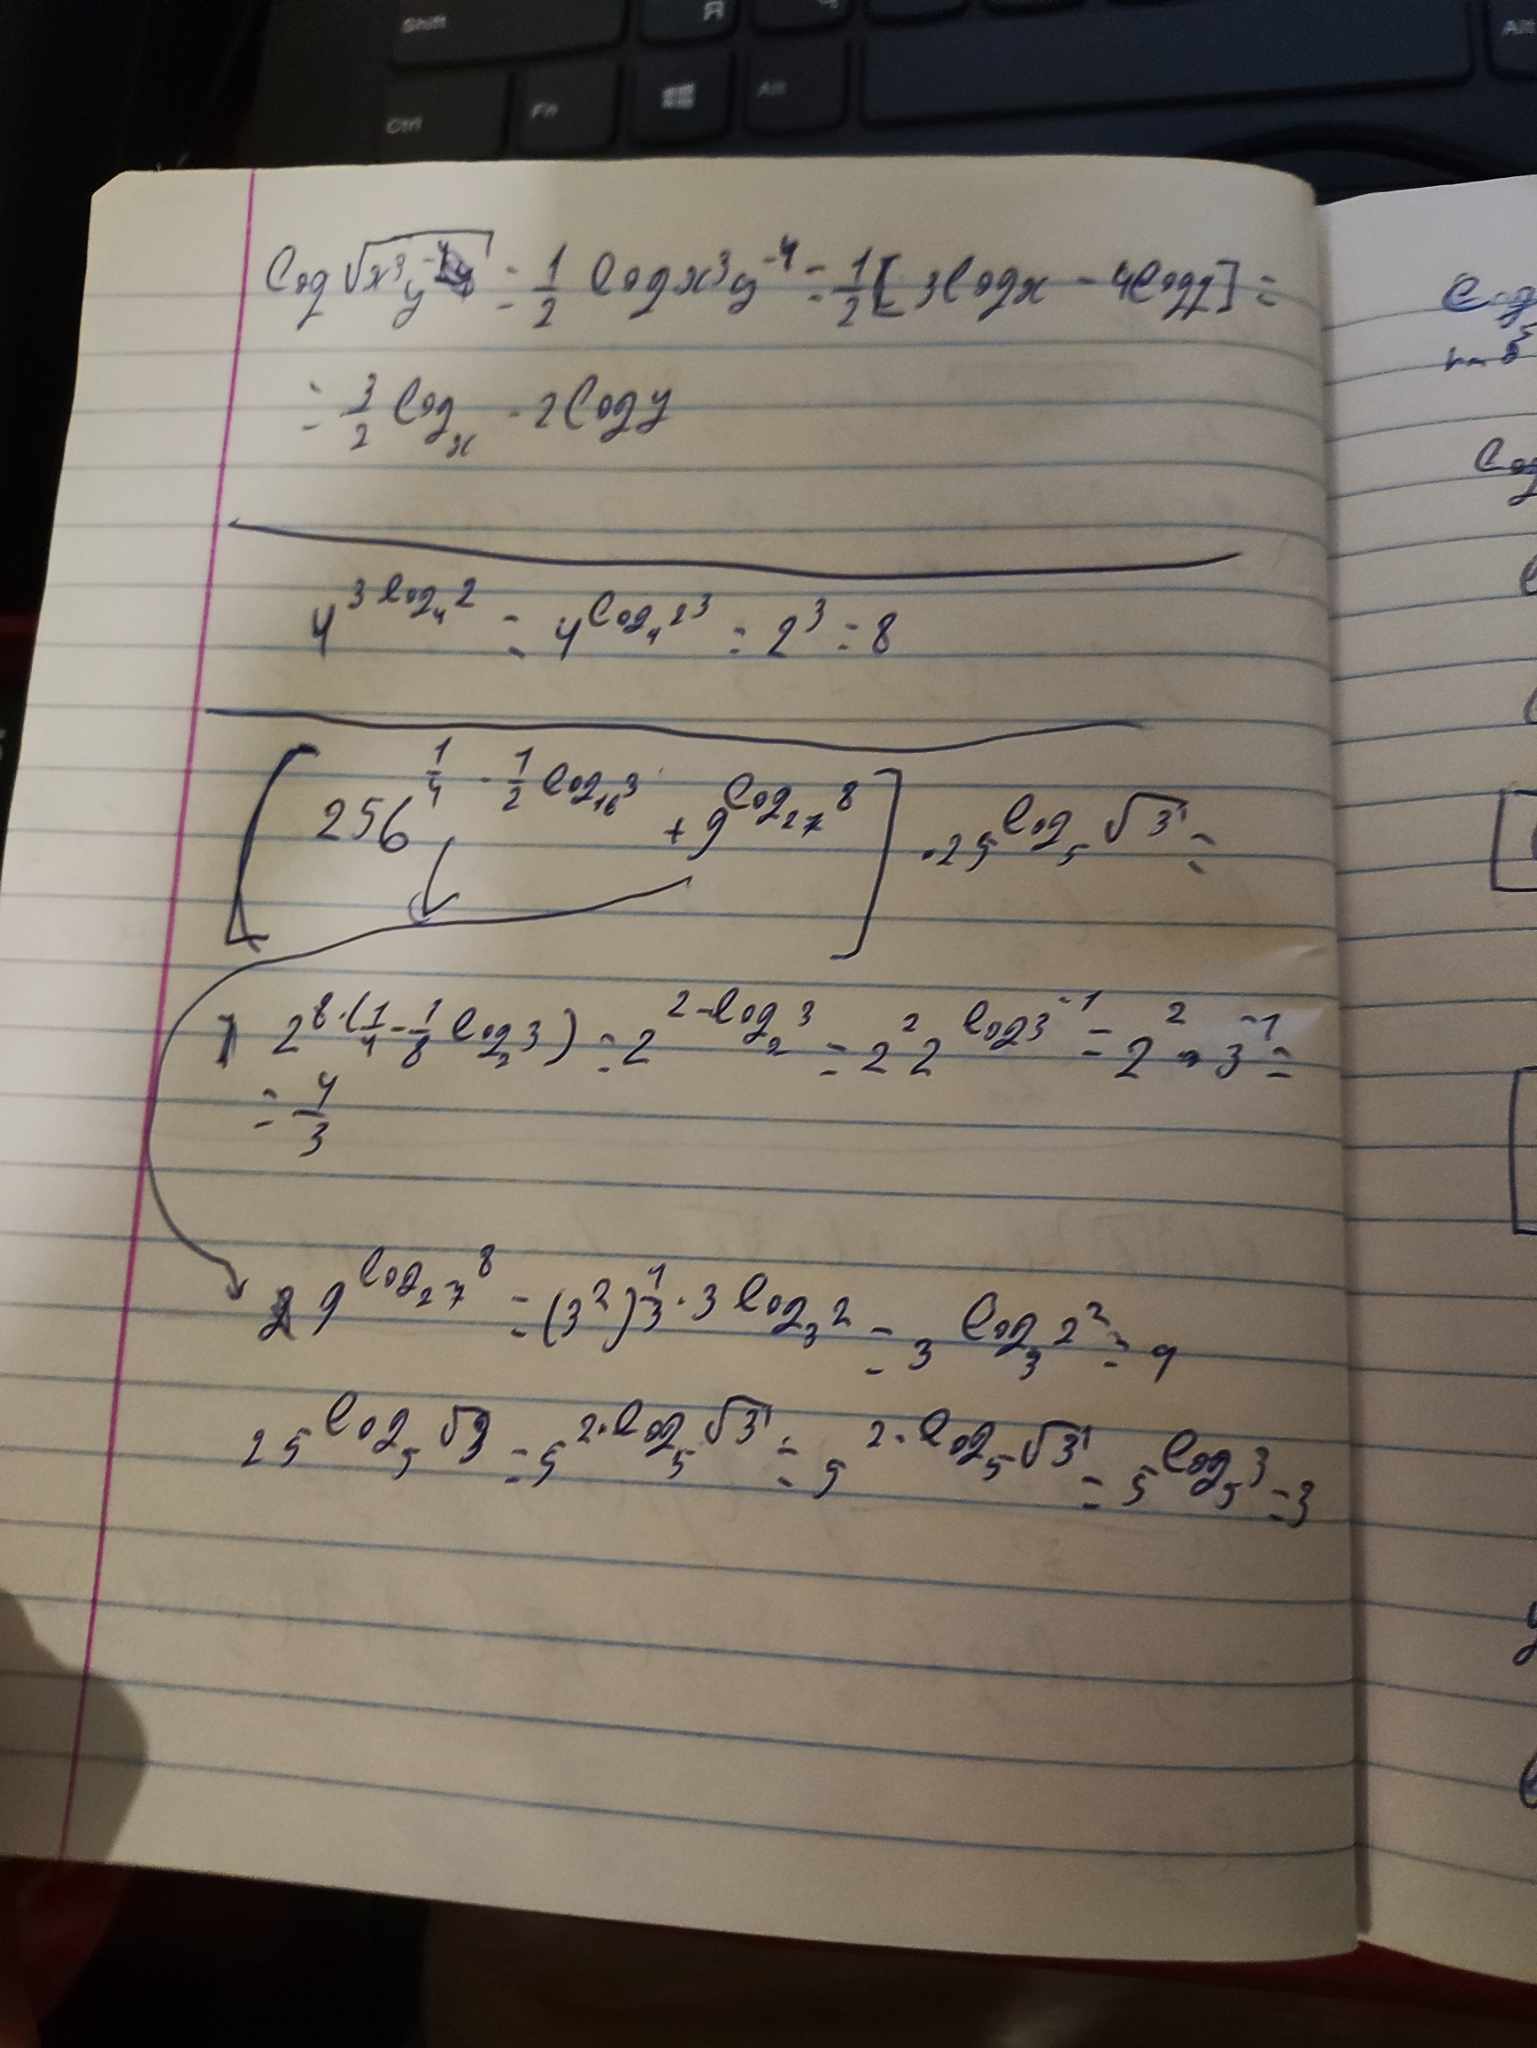 Shift
Я
Ч
Alt
Ctrl
Fn
Alt
log √(x³y⁻⁴) = 1/2 log x³y⁻⁴ = 1/2 [3 log x - 4 log y] =
= 3/2 log x - 2 log y
4^(3 log₄ 2) = 4^(log₄ 2³) = 2³ = 8
[256^(1/4 - 1/2 log₁₆ 3) + 9^(log₂₇ 8)] · 25^(log₅ √3) =
1 2^(8·(1/4 - 1/8 log₂ 3)) = 2^(2 - log₂ 3) = 2² 2^(log 3⁻¹) = 2² · 3⁻¹ =
= 4/3
2 9^(log₂₇ 8) = (3²)^(1/3 · 3 log₃ 2) = 3^(log₃ 2²) = 4
25^(log₅ √3) = 5^(2·log₅ √3) = 5^(2·log₅ √3) = 5^(log₅ 3) = 3